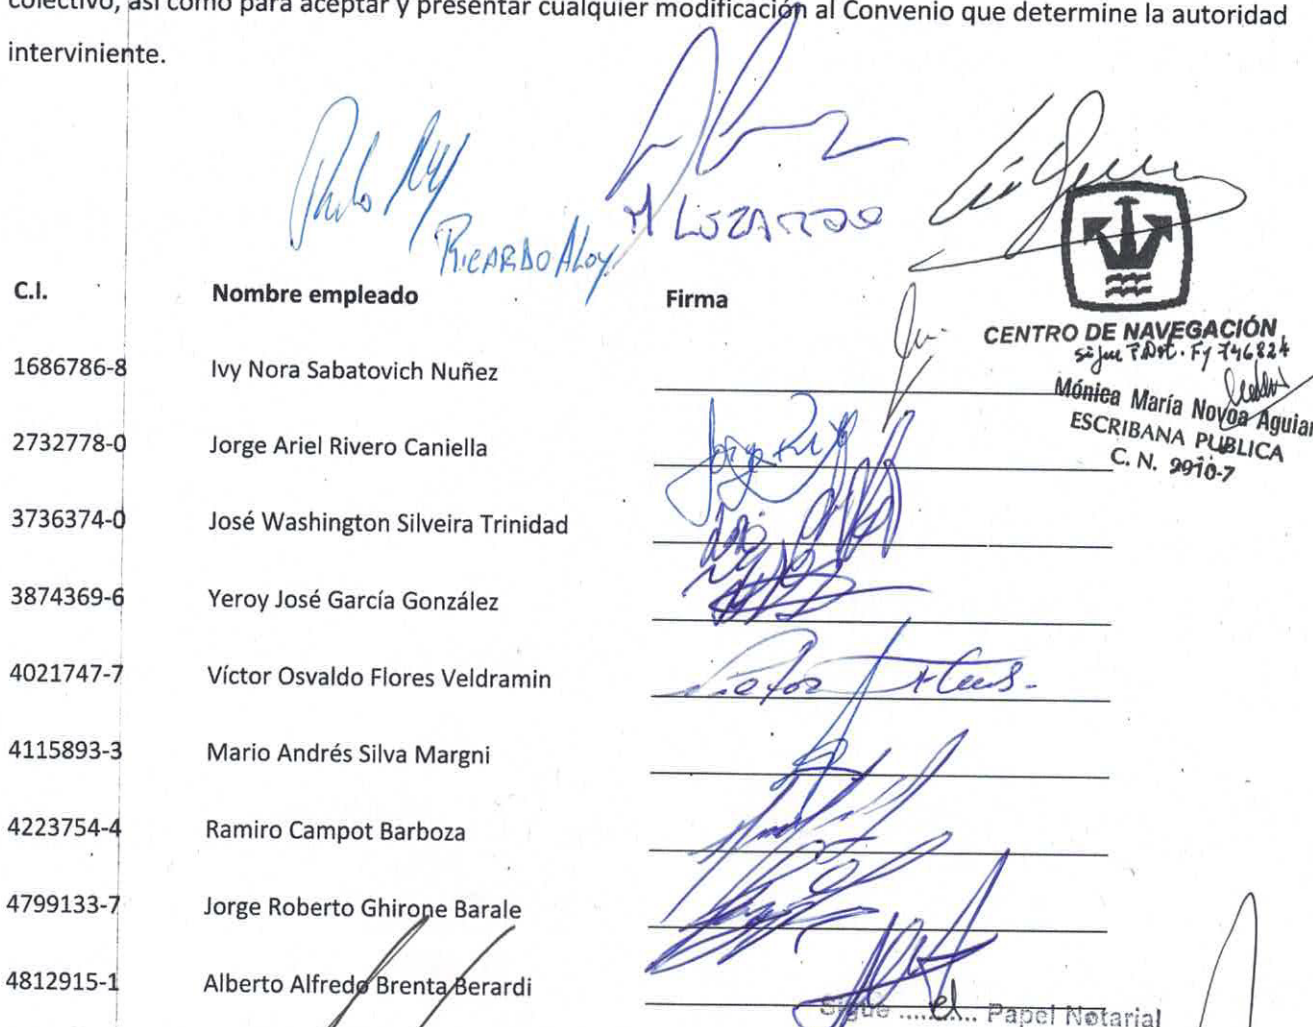 colectivo, así como para aceptar y presentar cualquier modificación al Convenio que determine la autoridad
interviniente.
RICARDO ALOY
C.I. Nombre empleado Firma
CENTRO DE NAVEGACIÓN
1686786-8 Ivy Nora Sabatovich Nuñez
Mónica María Novoa Aguiar
ESCRIBANA PUBLICA
C. N. 9910-7
2732778-0 Jorge Ariel Rivero Caniella
3736374-0 José Washington Silveira Trinidad
3874369-6 Yeroy José García González
4021747-7 Víctor Osvaldo Flores Veldramin
4115893-3 Mario Andrés Silva Margni
4223754-4 Ramiro Campot Barboza
4799133-7 Jorge Roberto Ghirone Barale
4812915-1 Alberto Alfredo Brenta Berardi
Sigue .... el .... Papel Notarial